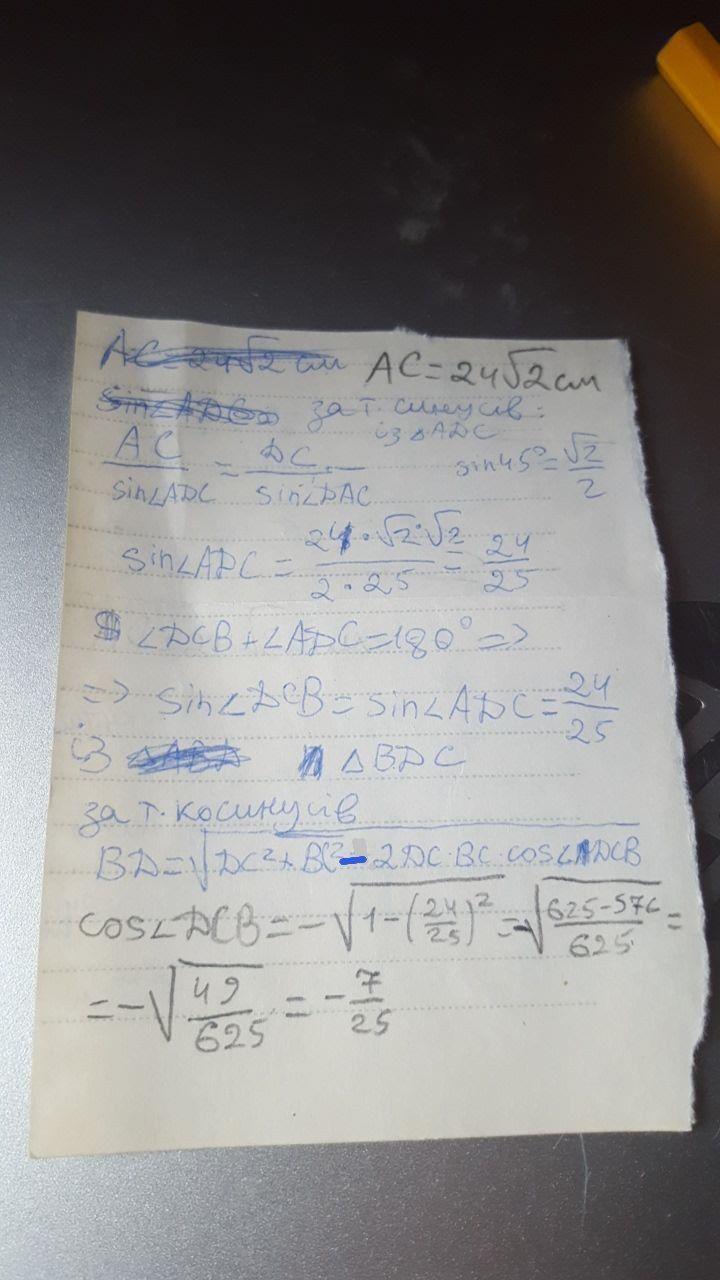 AC = 24√2 см AC = 24√2 см
sin∠ADC за т. синусів:
із △ADC
AC/sin∠ADC = DC/sin∠DAC sin45° = √2/2
sin∠ADC = 24·√2·√2/2·25 = 24/25
∠DCB + ∠ADC = 180° =>
=> sin∠DCB = sin∠ADC = 24/25
із △BDC
за т. косинусів
BD = √DC² + BC² - 2DC·BC·cos∠DCB
cos∠DCB = -√1-(24/25)² = -√625-576/625 =
= -√49/625 = -7/25